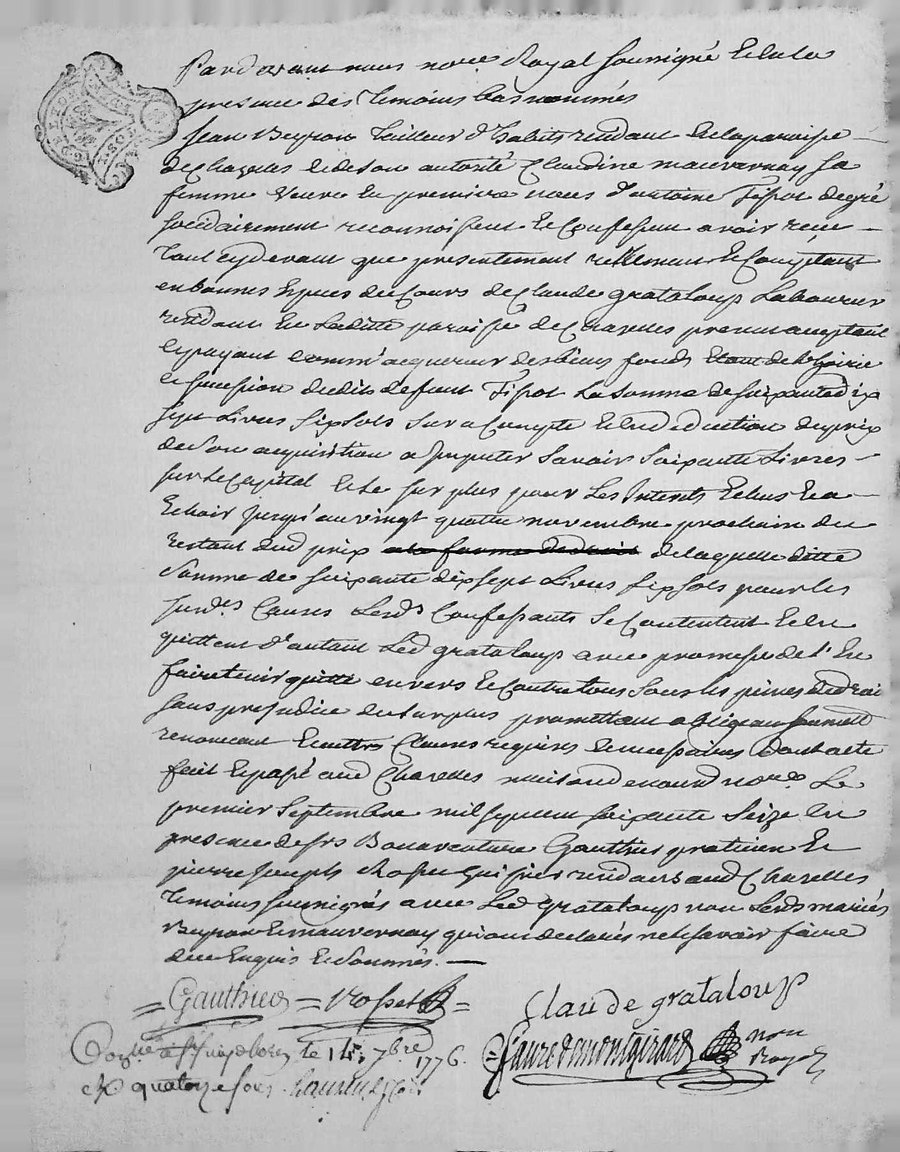 Pardevant nous no.re Royal soussigné et en la
presence des temoins bas nommés
Jean Beyron tailleur d'habits residant en la paroisse
de Charelles et de son autorité Claudine mauvernay sa
femme veuve en premiere noces d'antoine Tissot de gré
solidairement reconnoissent et confessent avoir reçu
tant cy devant que presentement reellement et Comptant
en bonnes especes de Cours de Claude grataloup Laboureur
residant en Laditte paroisse de Charelles present acceptant
et payant comm'acquereur des biens fonds de l'hoirie
et succession dudit defunt Tissot La somme de soixante dix
sept Livres six sols sur a Compte et en deduction du prix
de son acquisition a Imputer Savoir Soixante Livres
sur le Capital et le surplus pour Les Interets Echus et a
Echoir Jusqu'au vingt quatre novembre prochain du
restant dud prix de laquelle ditte
Somme de soixante dix sept Livres six sols pour les
susd.s Causes Lesd.s Confessants Se Contentent et en
quittent d'autant Led grataloup avec promesse de l'En
faire tenir quitte envers et Contre tous sous les peines de droit
sans prejudice du surplus promettant obligeant soumett
renonçant et autres Clauses requises et necessaires dont acte
fait et passé aud Charelles no.re Le
premier Septembre mil sept cent soixante Seize en
presence de srs Bonaventure Gauthier praticien et
pierre Joseph Rosset residants aud Charelles
temoins soussignés avec Led grataloup non Lesd mariés
Beyron et mauvernay qui ont declarés ne le savoir faire
de ce Enquis et Sommés.
Gauthier Rosset
Claude grataloup
faure demontgirard no.re Royal
le 14e 7bre 1776.
quatorze sous